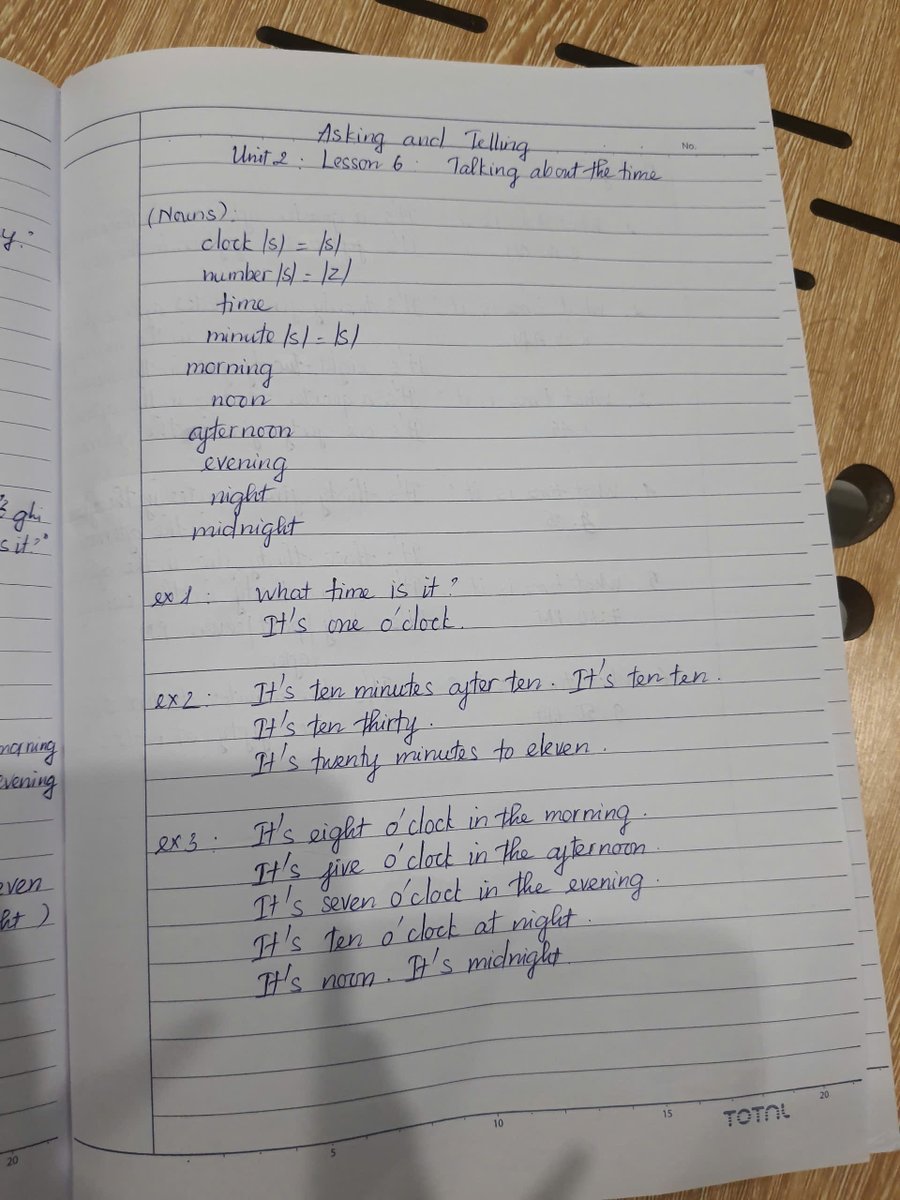 Asking and Telling
No.
Unit 2 : Lesson 6 : Talking about the time
(Nouns):
clock |s| = |s|
number |s| = |z|
time
minute |s| = |s|
morning
noon
afternoon
evening
night
midnight
ex 1 : What time is it?
It's one o'clock.
ex 2 : It's ten minutes after ten. It's ten ten.
It's ten thirty.
It's twenty minutes to eleven.
ex 3 : It's eight o'clock in the morning.
It's five o'clock in the afternoon.
It's seven o'clock in the evening.
It's ten o'clock at night.
It's noon. It's midnight.
5 10 15 20
TOTAL
ghi
s it?"
morning
evening
even
ht )
20